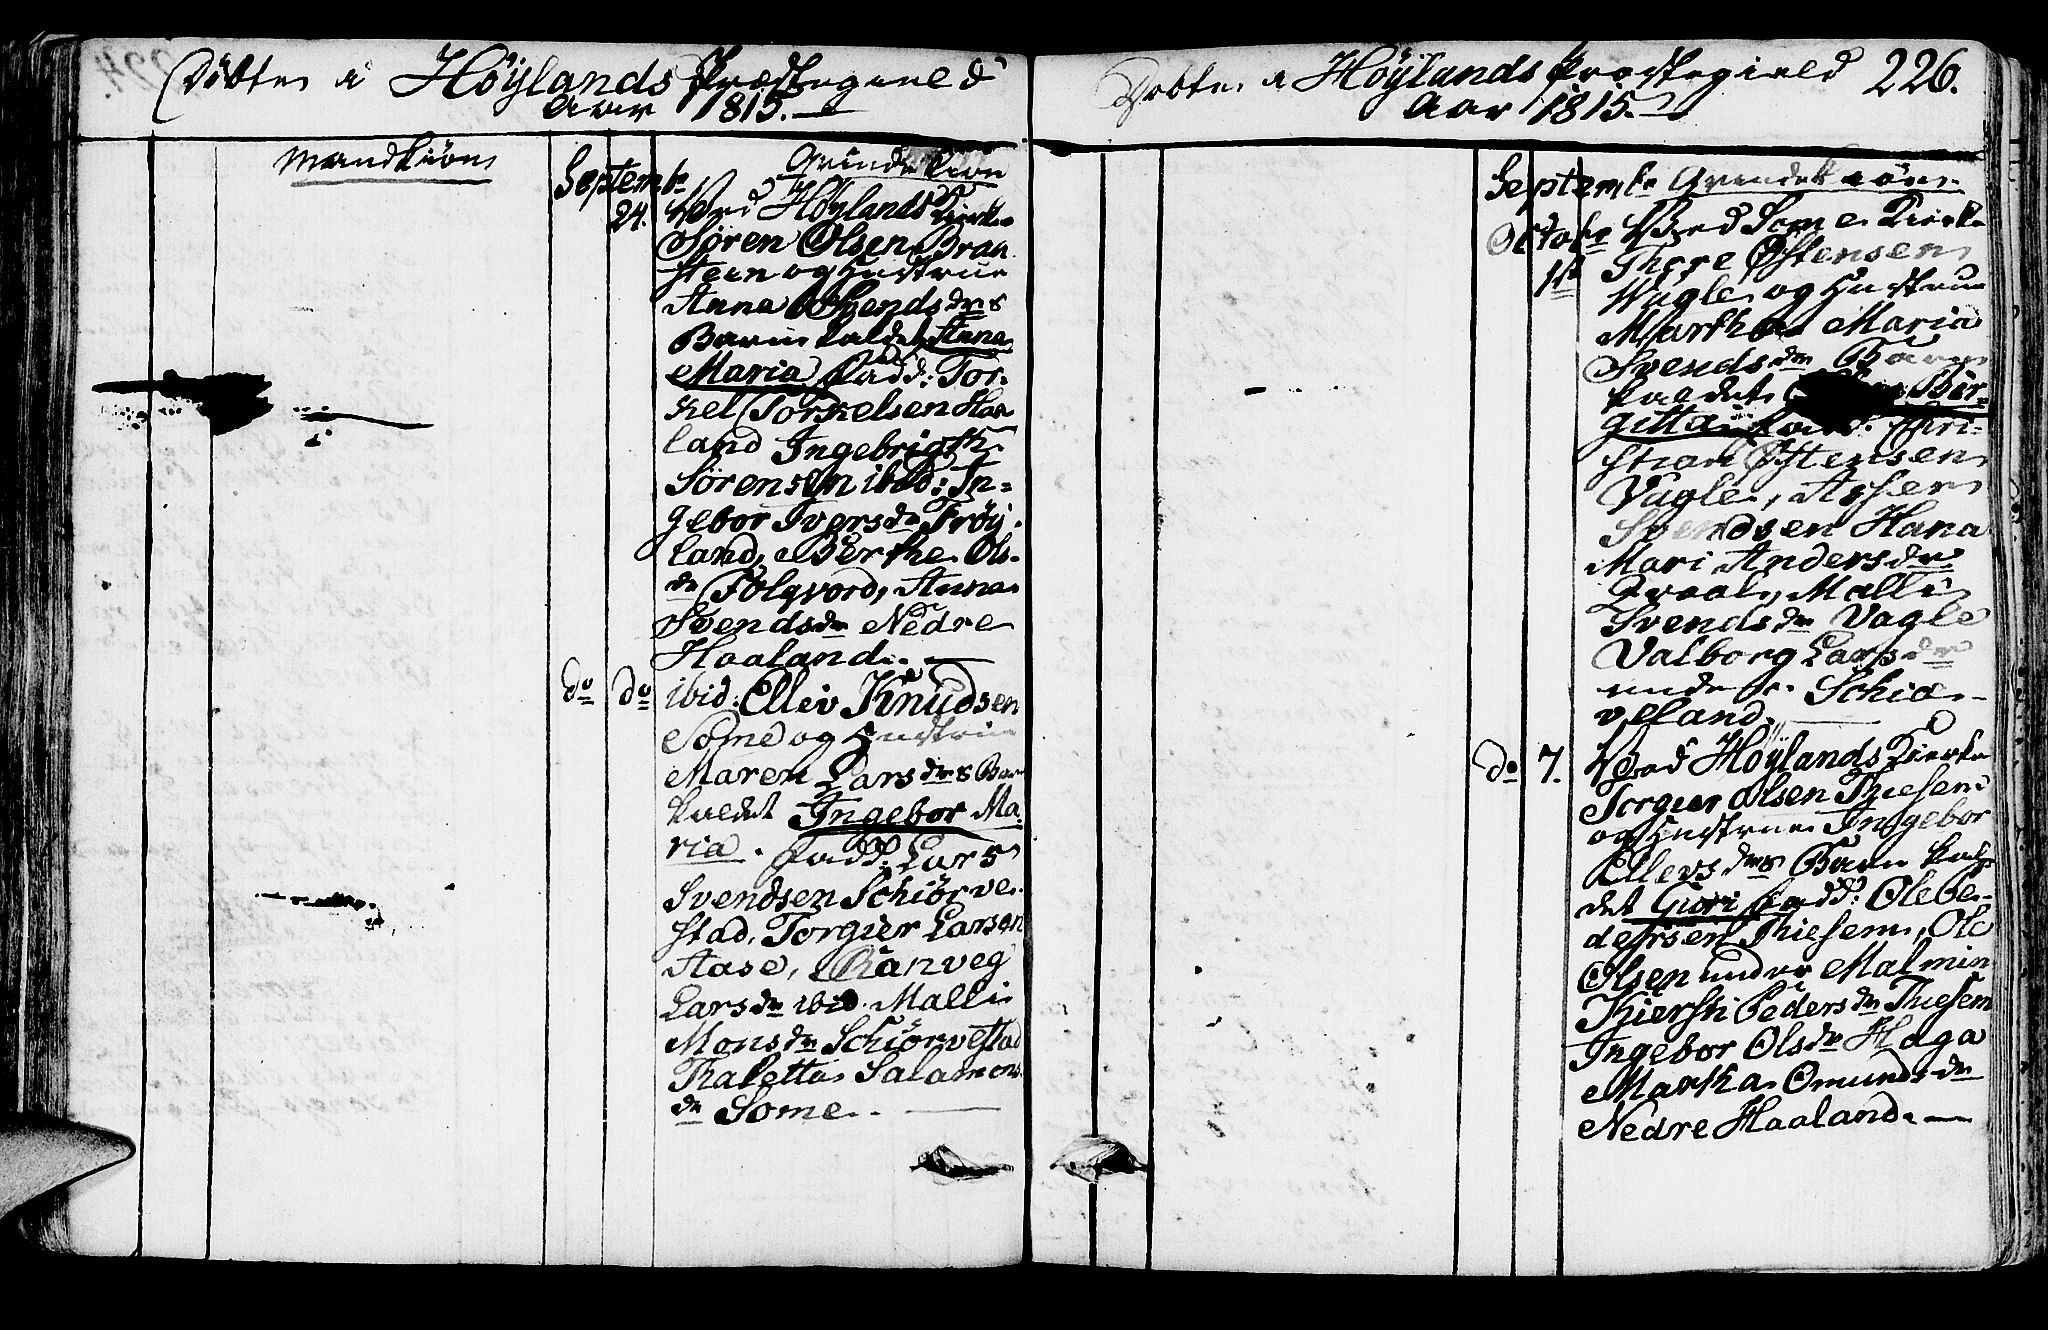 Döbte i Höylands Præstegield
Aar 1815.
Mandkiön
Septembr Qvindekiön
24. Ved Höylands Kirke
Sören Olsen Bran
steen og Hustrue
Anna Svends drs
Barn kaldet Anna
Maria Fadd: Tor-
kel Torkelsen Haa
land Ingebrigth
Sörensen ibid: In-
gebor Iversdr Fröy-
land, Berthe Ols-
dr Folqvord, Anna
Svendsdr Nedre
Haaland.
do do ibid: Ellev Knudsen
Some og Hustrue
Maren Lars drs Bar
kaldet Ingebor Ma-
ria. Fadd: Lars
Svendsen Schiörve-
stad, Torgier Larsen
Aase, Ranveg
Larsdr ibid. Malli
Monsdr Schiörvestad
Thaletta Salamons
dr Some.
Döbte i Höylands Præstegield 226.
Aar 1815.
Septembr Qvindekiön
Octobr Ved Some Kirke
1ste Thore Östensen
Vagle og Hustrue
Martha Maria
Svendsdr Barn
kaldet Bir-
gitta Fadd: Chri-
stian Östensen
Vagle, Asser
Svendsen Hana
Mari Andersdr
Malli
Svendsdr Vagle
Valborg Larsdr
under Schiæ-
veland.
do 7. Ved Höylands Kirke
Torgier Olsen Thiesem
og Hustrue Ingebor
Ellevs drs Barn kal-
det Guri Fadd: Ole Pe-
dersen Thiesem, Ole
Olsen under Malmin
Kiersti Pedersdr Thiesem
Ingebor Olsdr Haga
Martha Omundsdr
Nedre Haaland.